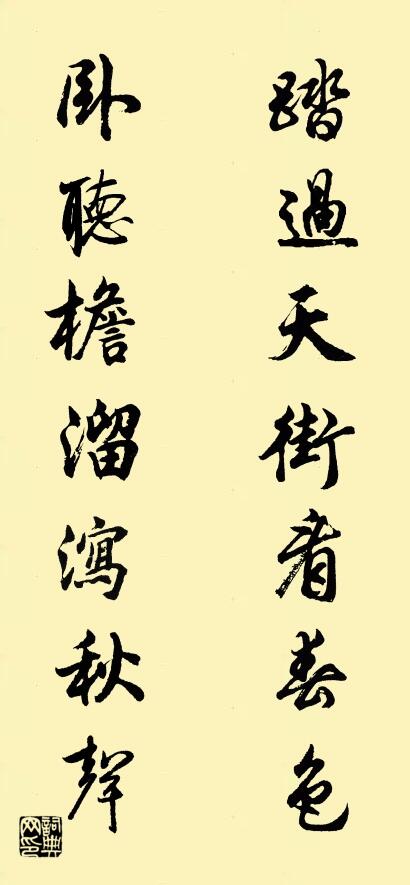 踏過天街看春色
卧聽檐溜瀉秋聲
詞典网印